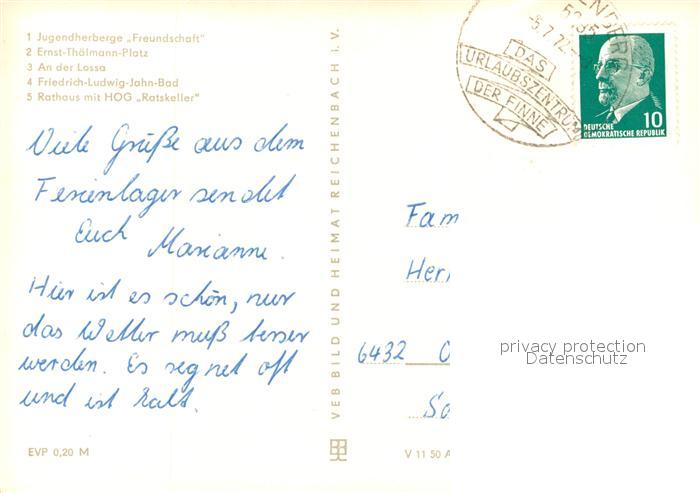 1 Jugendherberge „Freundschaft"
2 Ernst-Thälmann-Platz
3 An der Lossa
4 Friedrich-Ludwig-Jahn-Bad
5 Rathaus mit HOG „Ratskeller"
Viele Grüße aus dem
Ferienlager sendet
Euch
Marianne.
Hier ist es schön, nur
das Wetter muß besser
werden. Es regnet oft
und ist kalt.
EVP 0,20 M
VEB BILD UND HEIMAT REICHENBACH i. V.
-5.7.72
DAS
URLAUBSZENTRUM
DER FINNE
10
DEUTSCHE
DEMOKRATISCHE REPUBLIK
Fam
Herr
6432 O
privacy protection
Datenschutz
V 11 50 A